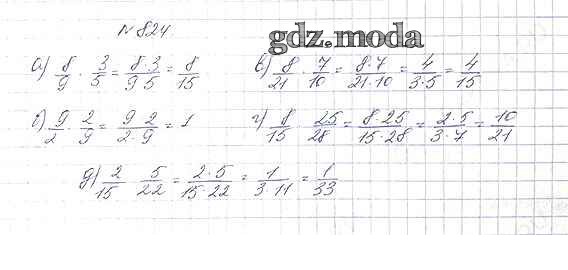 №824
gdz.moda
а) 8/9 · 3/5 = 8·3/9·5 = 8/15
в) 8/21 · 7/10 = 8·7/21·10 = 4/3·5 = 4/15
б) 9/2 · 2/9 = 9 2/2·9 = 1
г) 8/15 25/28 = 8·25/15·28 = 2·5/3·7 = 10/21
д) 2/15 5/22 = 2·5/15·22 = 1/3·11 = 1/33